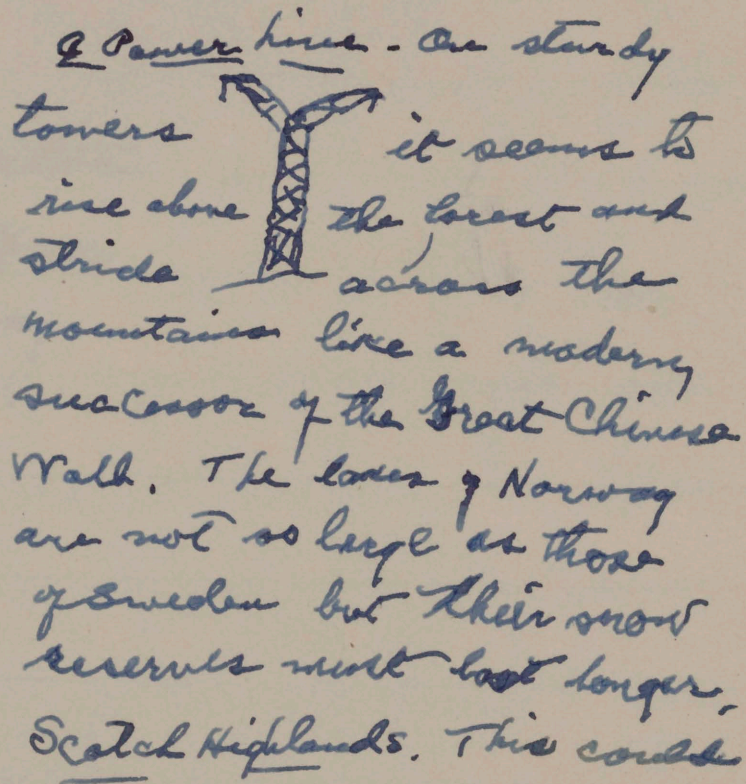 A Power Line - On sturdy
towers it seems to
rise above the forest and
stride across the
mountains like a modern,
successor of the Great Chinese
Wall. The lakes of Norway
are not so large as those
of Sweden but their snow
reserves must last longer.
Scotch Highlands. This could